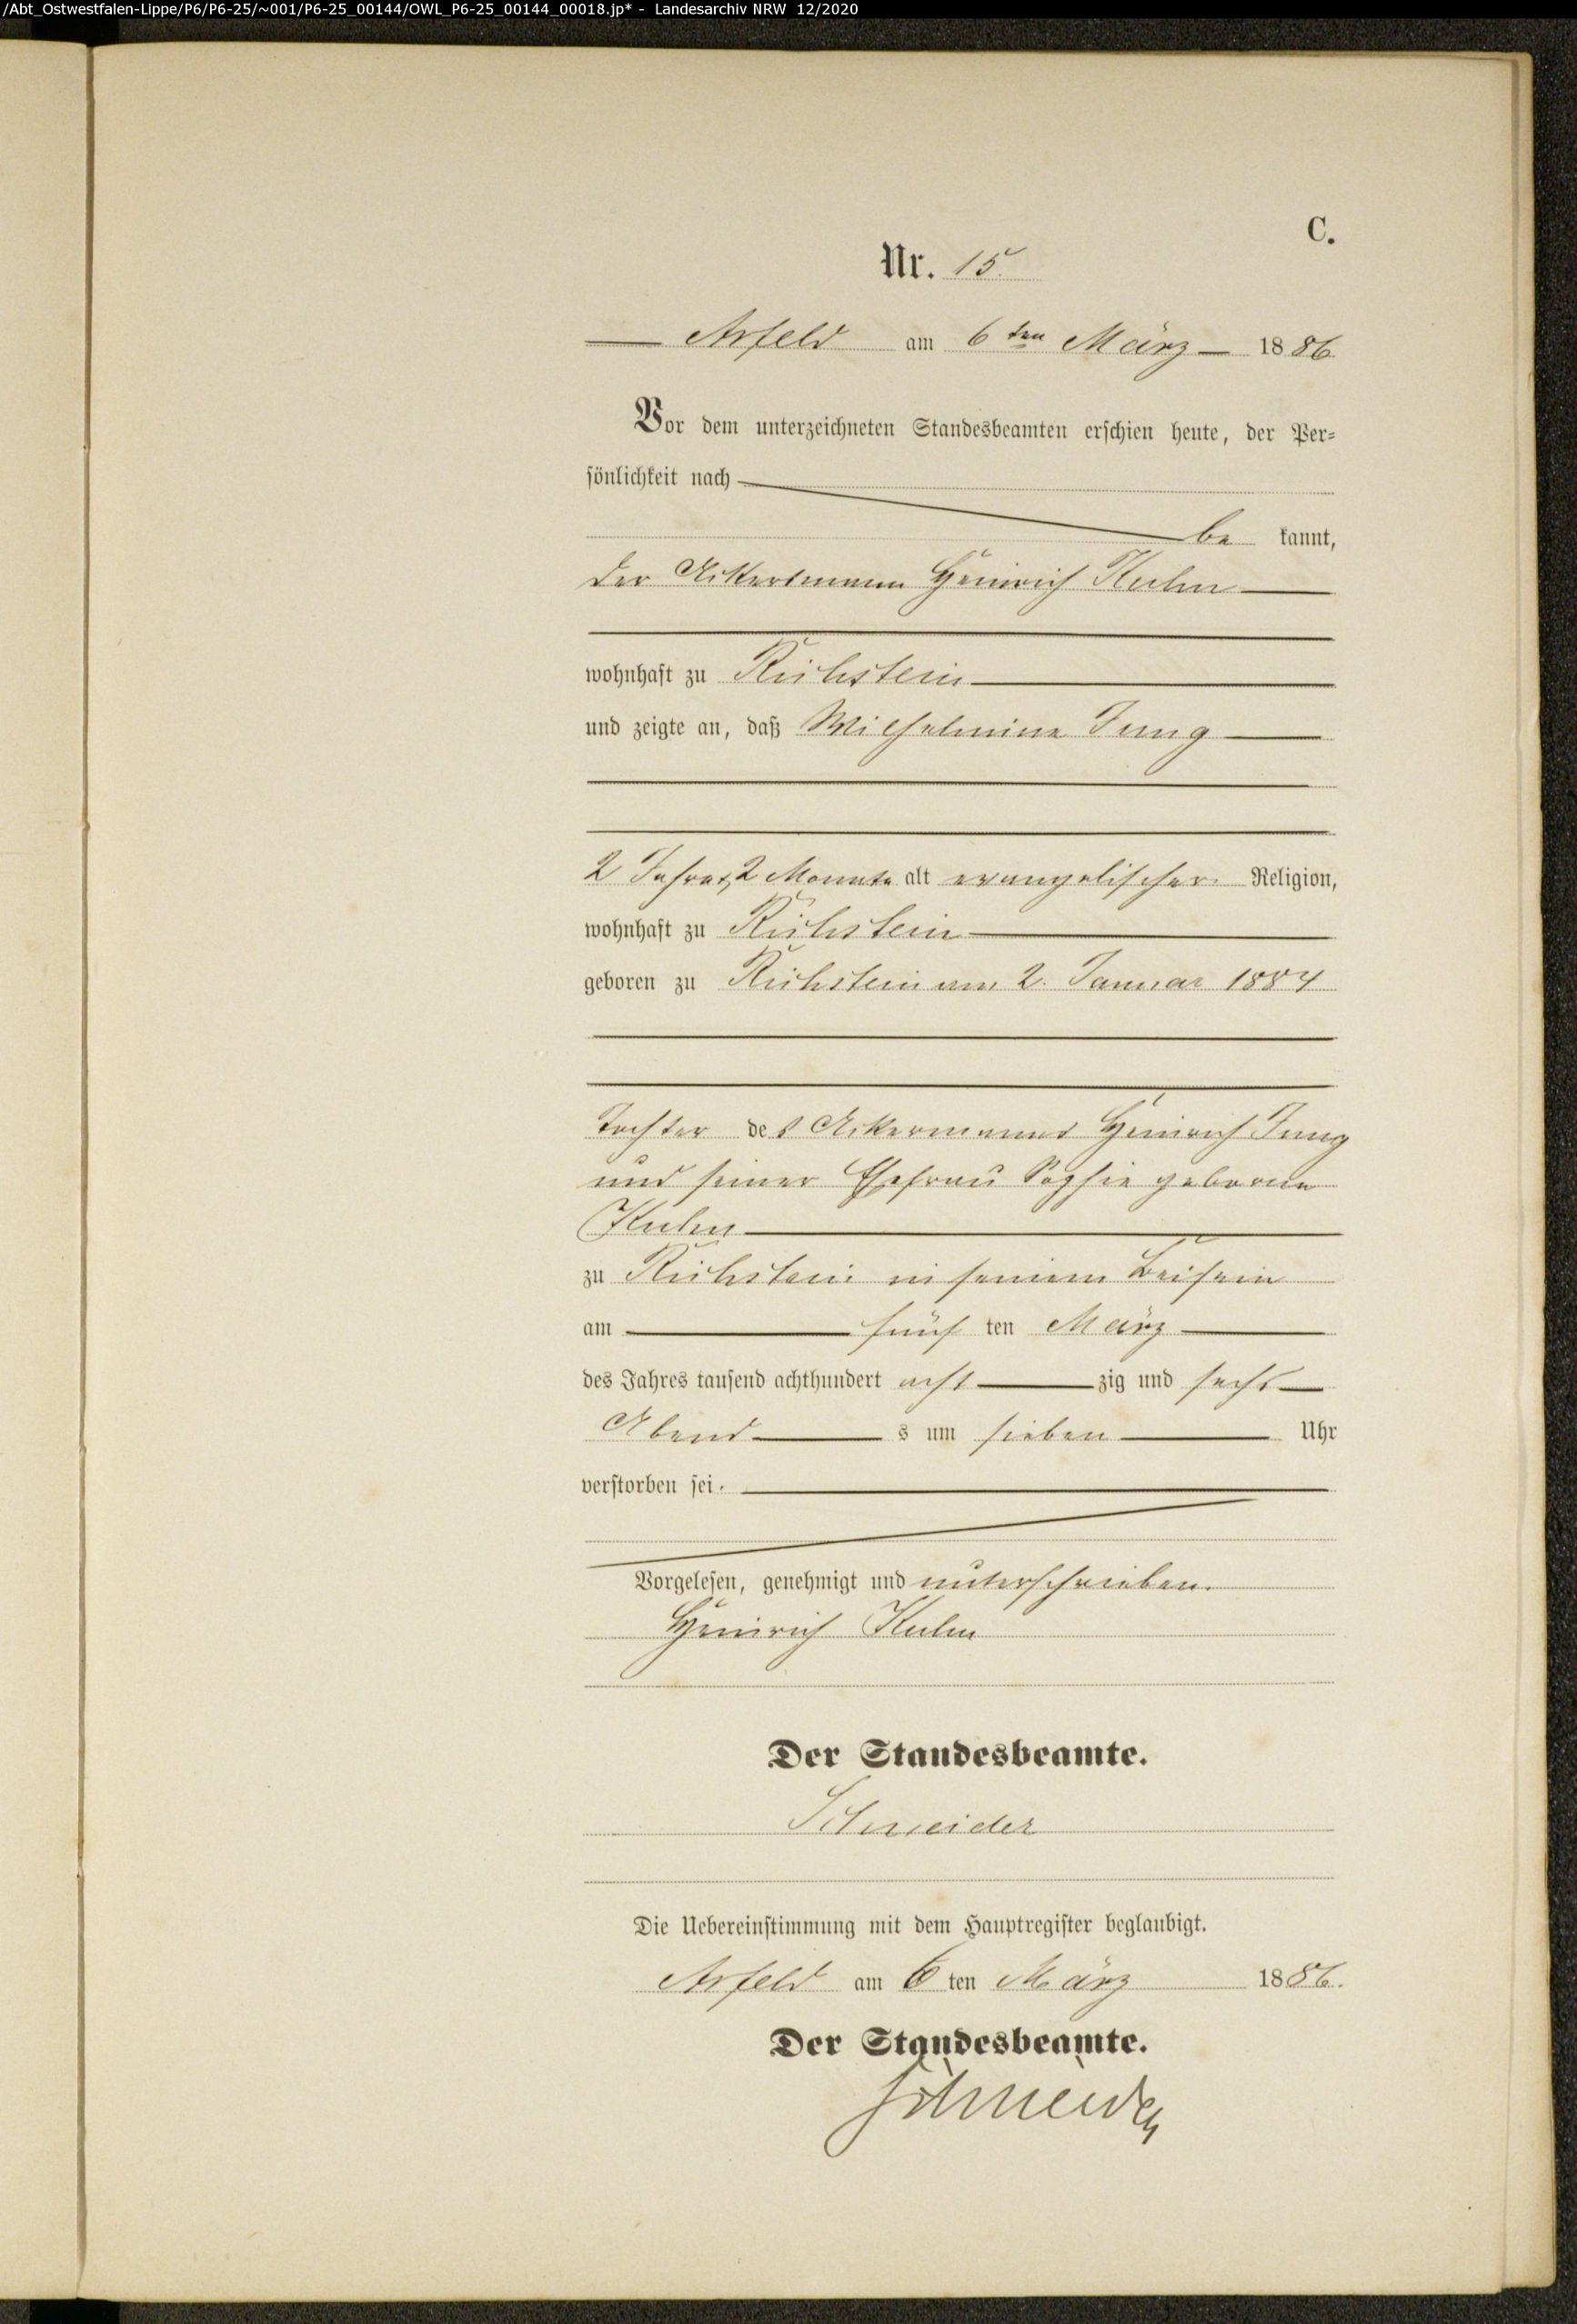 /Abt_Ostwestfalen-Lippe/P6/P6-25/~001/P6-25_00144/OWL_P6-25_00144_00018.jp* - Landesarchiv NRW 12/2020
C.
Nr. 15.
Arfeld am 6ten März 1886
Vor dem unterzeichneten Standesbeamten erschien heute, der Per-
sönlichkeit nach
be kannt,
der Ackersmann Heinrich Kuhn
wohnhaft zu Richstein
und zeigte an, daß Wilhelmine Jung
2 Jahre, 2 Monate alt evangelischer Religion,
wohnhaft zu Richstein
geboren zu Richstein am 2. Januar 1884
Tochter des Ackermanns Heinrich Jung
und seiner Ehefrau Sophie geborne
Kuhn
zu Richstein in seinem Beisein
am fünf ten März
des Jahres tausend achthundert acht zig und sechs
Abend s um sieben Uhr
verstorben sei.
Vorgelesen, genehmigt und unterschrieben.
Heinrich Kuhn
Der Standesbeamte.
Schneider
Die Uebereinstimmung mit dem Hauptregister beglaubigt.
Arfeld am 6 ten März 1886.
Der Standesbeamte.
Schneider